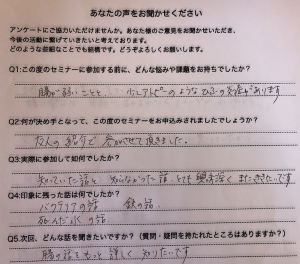 あなたの声をお聞かせください
アンケートにご協力いただけませんか。あなた様のご意見をお聞かせいただき、
今後の活動に繋げていきたいと考えております。
どのような些細なことでも結構です。どうぞよろしくお願いします。
Q1:この度のセミナーに参加する前に、どんな悩みや課題をお持ちでしたか?
腸が弱いことと
アトピーのような
があります
Q2:何が決め手となって、この度のセミナーをお申込みされましたでしょうか?
友人の紹介で 参加させて頂きました。
Q3:実際に参加して如何でしたか?
知っていた話と 知らなかった話 とても興味深く またききたいです
Q4:印象に残った話は何でしたか?
バクテリアの話 鉄の話
死んだ水の話
Q5:次回、どんな話を聞きたいですか?(質問・疑問を持たれたところはありますか?)
腸の話をもっと詳しく知りたいです